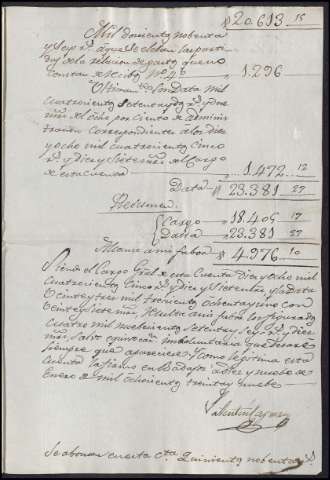 20.613 15
Mil doscientos noventa
y seis rs. a que se
de la relacion de gastos que no
constan de recibo Nº. 46 1.296
Ultimamte. son Data mil
cuatrocientos setenta y dos rs. y doce
mrs. del cinco por ciento de adminis
tracion correspondiente a los diez
y ocho mil cuatrocientos cinco
rs. y diez y siete mrs. del Cargo
de esta cuenta 1.472 12
Data 23.381 27
Resumen
Cargo 18.405 17
Data 23.381 27
Alcance a mi fabor 4.976 10
Siendo el Cargo Gral. de esta Cuenta Diez y ocho mil
cuatrocientos cinco rs. y diez y siete mrs. y la Data
veinte y tres mil trescientos ochenta y uno con
veinte y siete mrs. resulta a mi fabor
cuatro mil novecientos setenta y seis rs. y diez
mrs. salvo equivocacion involuntaria que desharé
siempre que apareciere. Y como legitima esta
cuenta la firmo en Badajoz a diez y nueve de
Enero de mil ochocientos treinta y nueve
Valentin
Se abonan cuenta quinientos noventa